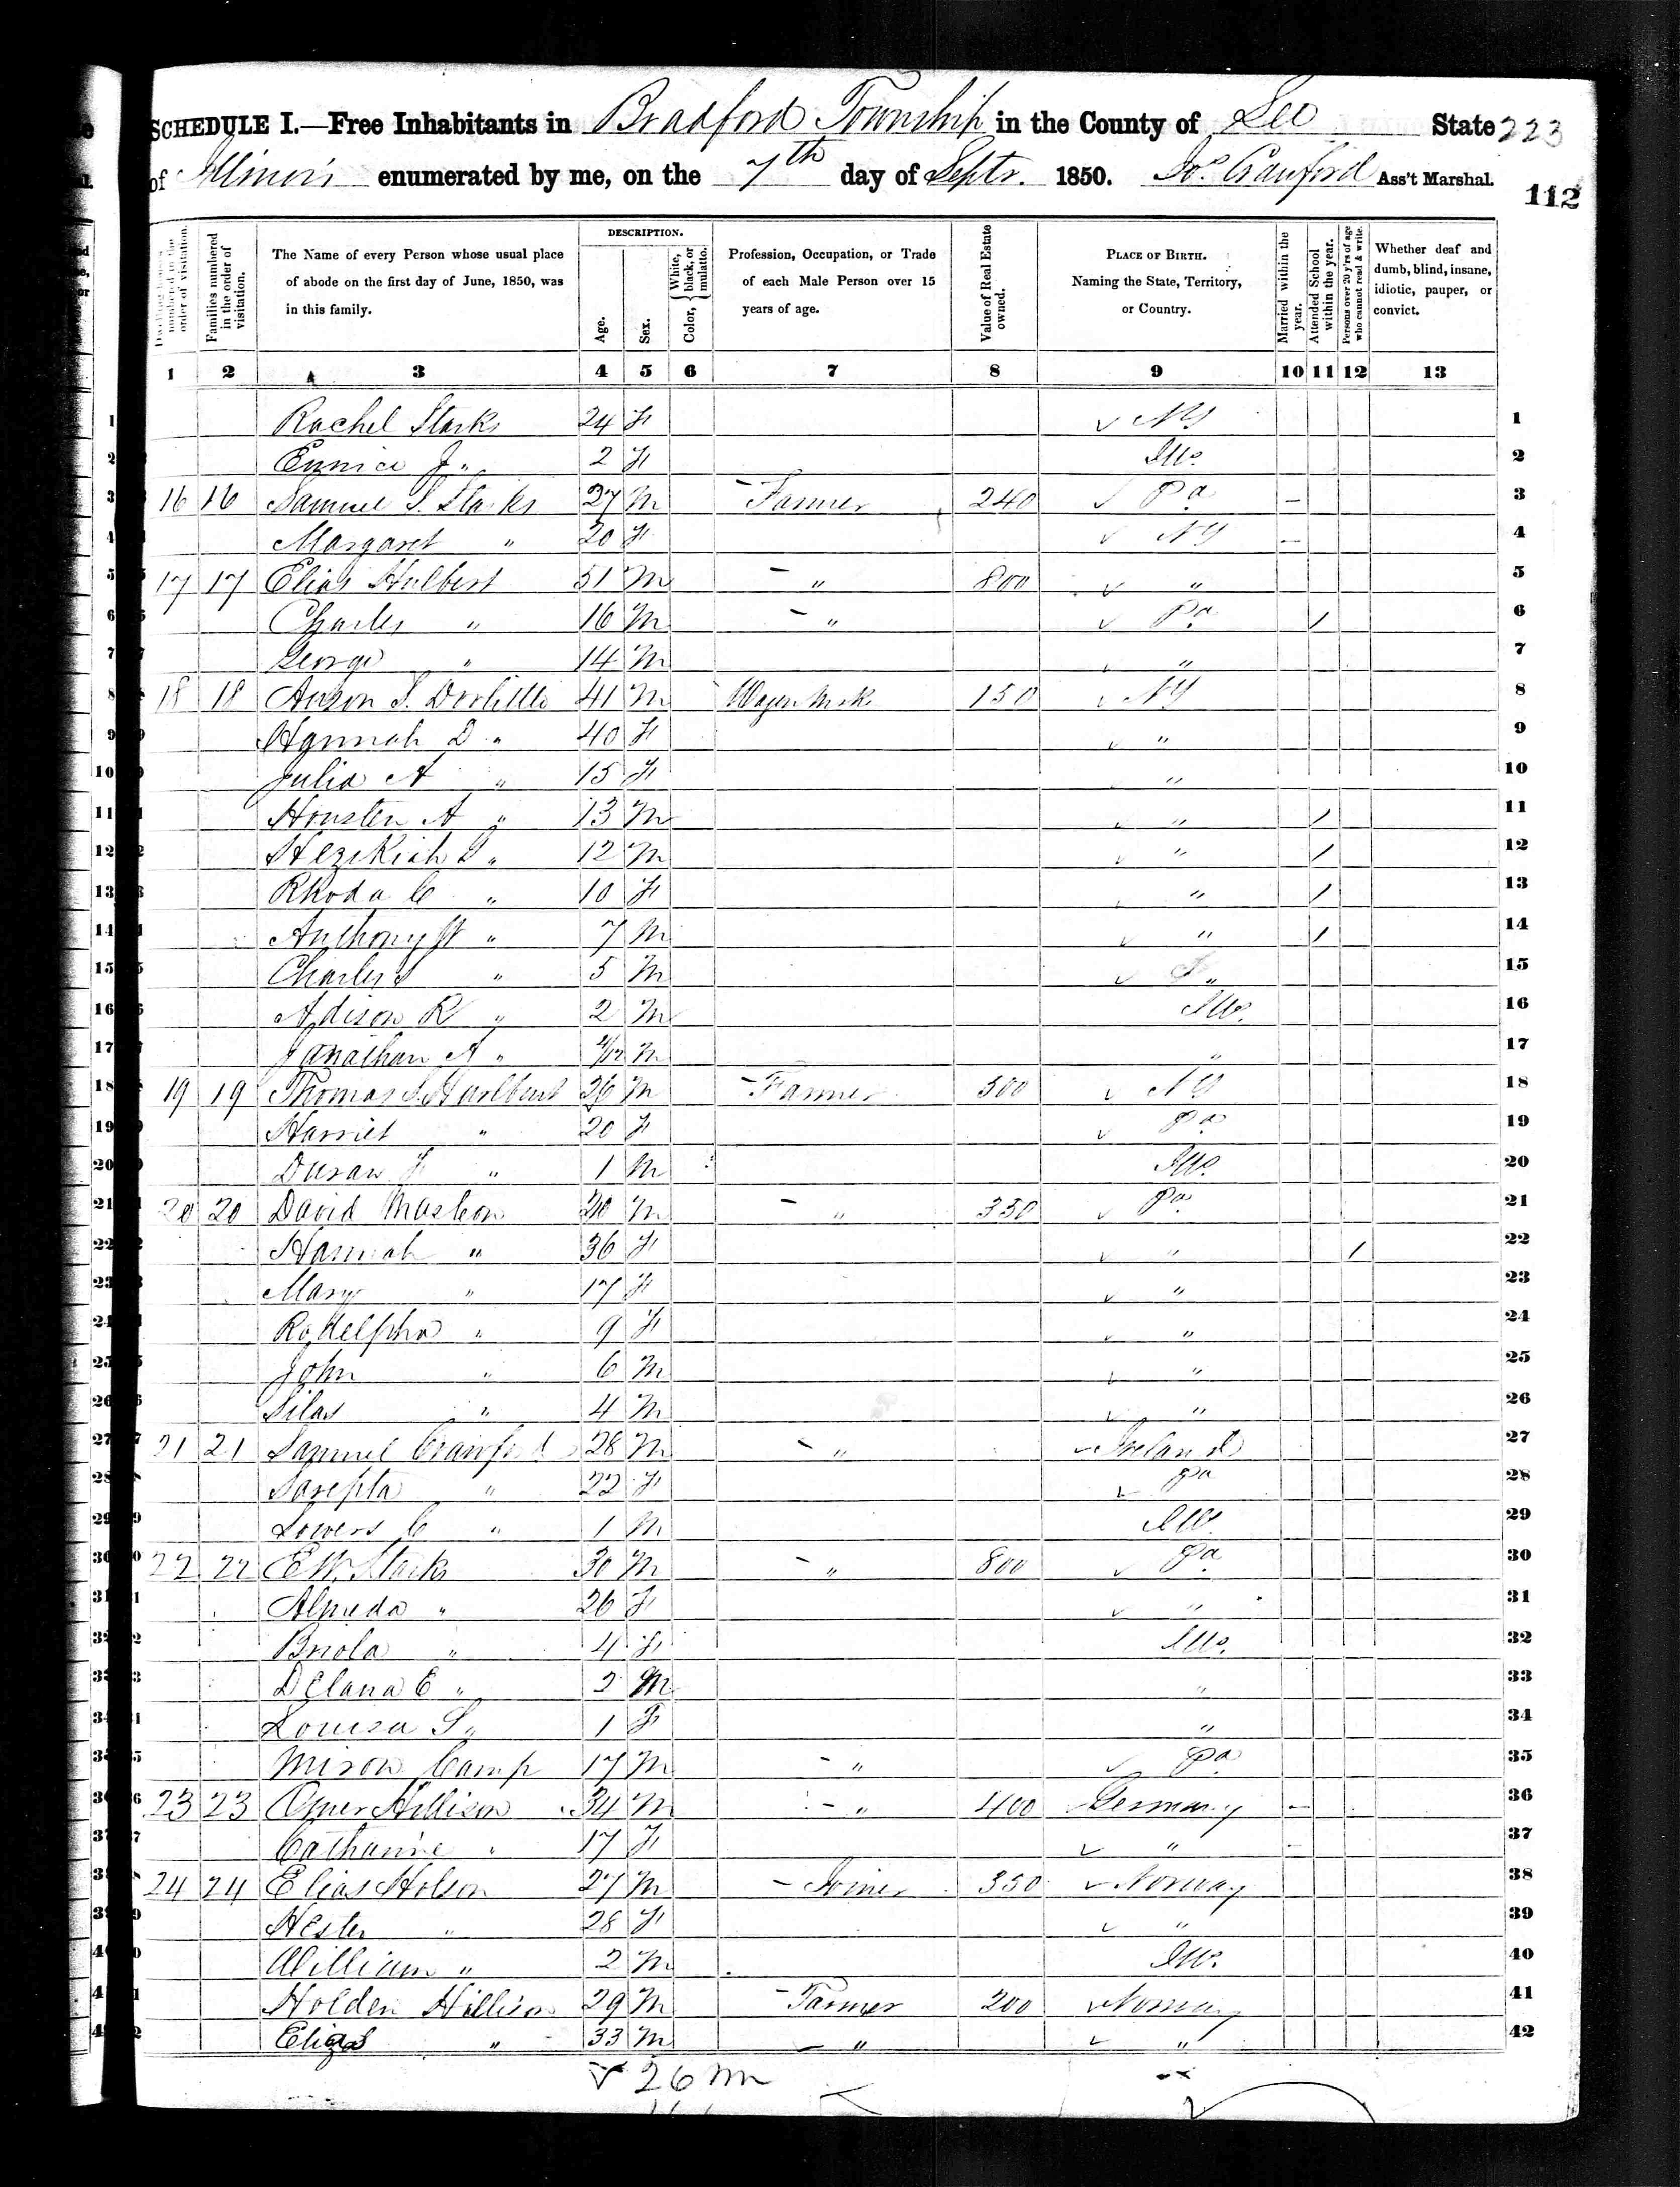 SCHEDULE I.—Free Inhabitants in Bradford Township in the County of Lee State 223
of Illinois enumerated by me, on the 7th day of Septr. 1850. Jos. Crawford Ass't Marshal.
112
Dwelling-houses numbered in the order of visitation.
Families numbered in the order of visitation.
The Name of every Person whose usual place of abode on the first day of June, 1850, was in this family.
DESCRIPTION.
Age.
Sex.
Color, { White, black, or mulatto.
Profession, Occupation, or Trade of each Male Person over 15 years of age.
Value of Real Estate owned.
PLACE OF BIRTH. Naming the State, Territory, or Country.
Married within the year.
Attended School within the year.
Persons over 20 y'rs of age who cannot read & write.
Whether deaf and dumb, blind, insane, idiotic, pauper, or convict.
1 2 3 4 5 6 7 8 9 10 11 12 13
1 Rachel Starks 24 F ✓ NY 1
2 Eunice J " 2 F Ills. 2
3 16 16 Samuel S. Starks 27 M – Farmer 240 ✓ Pa – 3
4 Margaret " 20 F ✓ NY – 4
5 17 17 Elias Hulbert 51 M – " 800 ✓ " 5
6 Charles " 16 M – " ✓ Pa / 6
7 George " 14 M ✓ " 7
8 18 18 Anson S. 41 M 150 ✓ NY 8
9 Hannah D " 40 F ✓ " 9
10 Julia A " 15 F " 10
11 Housten A " 13 M ✓ " / 11
12 Hezikiah S " 12 M ✓ " / 12
13 Rhoda C " 10 F ✓ " / 13
14 Anthony W " 7 M ✓ " / 14
15 Charles S " 5 M ✓ " 15
16 Adison R " 2 M Ills. 16
17 Jonathan A " 4/12 M " 17
18 19 19 Thomas S. Hurlburt 26 M – Farmer 500 ✓ NY 18
19 Harriet " 20 F ✓ Pa 19
20 " 1 M Ills. 20
21 20 20 David Maston M – " 350 ✓ Pa 21
22 Hannah " 36 F ✓ " / 22
23 Mary " 17 F ✓ " 23
24 Rodelpha " 9 F ✓ " 24
25 John " 6 M ✓ " 25
26 Silas " 4 M ✓ " 26
27 21 21 Samuel Crawford 28 M – " ✓ Ireland 27
28 Sarepta " 22 F ✓ Pa 28
29 C " 1 M Ills. 29
30 22 22 E W. Starks 30 M – " 800 ✓ Pa 30
31 Almeda " 26 F ✓ " 31
32 Briola " 4 F Ills. 32
33 Delana E " 2 M " 33
34 Louisa S " 1 F " 34
35 Miron Camp 17 M – " ✓ Pa 35
36 23 23 Omer Hillison 34 M – " 400 Germany – 36
37 Catharine " 17 F ✓ " – 37
38 24 24 Elias Holson 27 M – Joiner 350 ✓ Norway 38
39 Hester " 28 F ✓ " 39
40 William " 2 M Ills. 40
41 Holden Hillison 29 M – Farmer 200 ✓ Norway 41
42 Elias " 33 M – " ✓ " 42
26 m